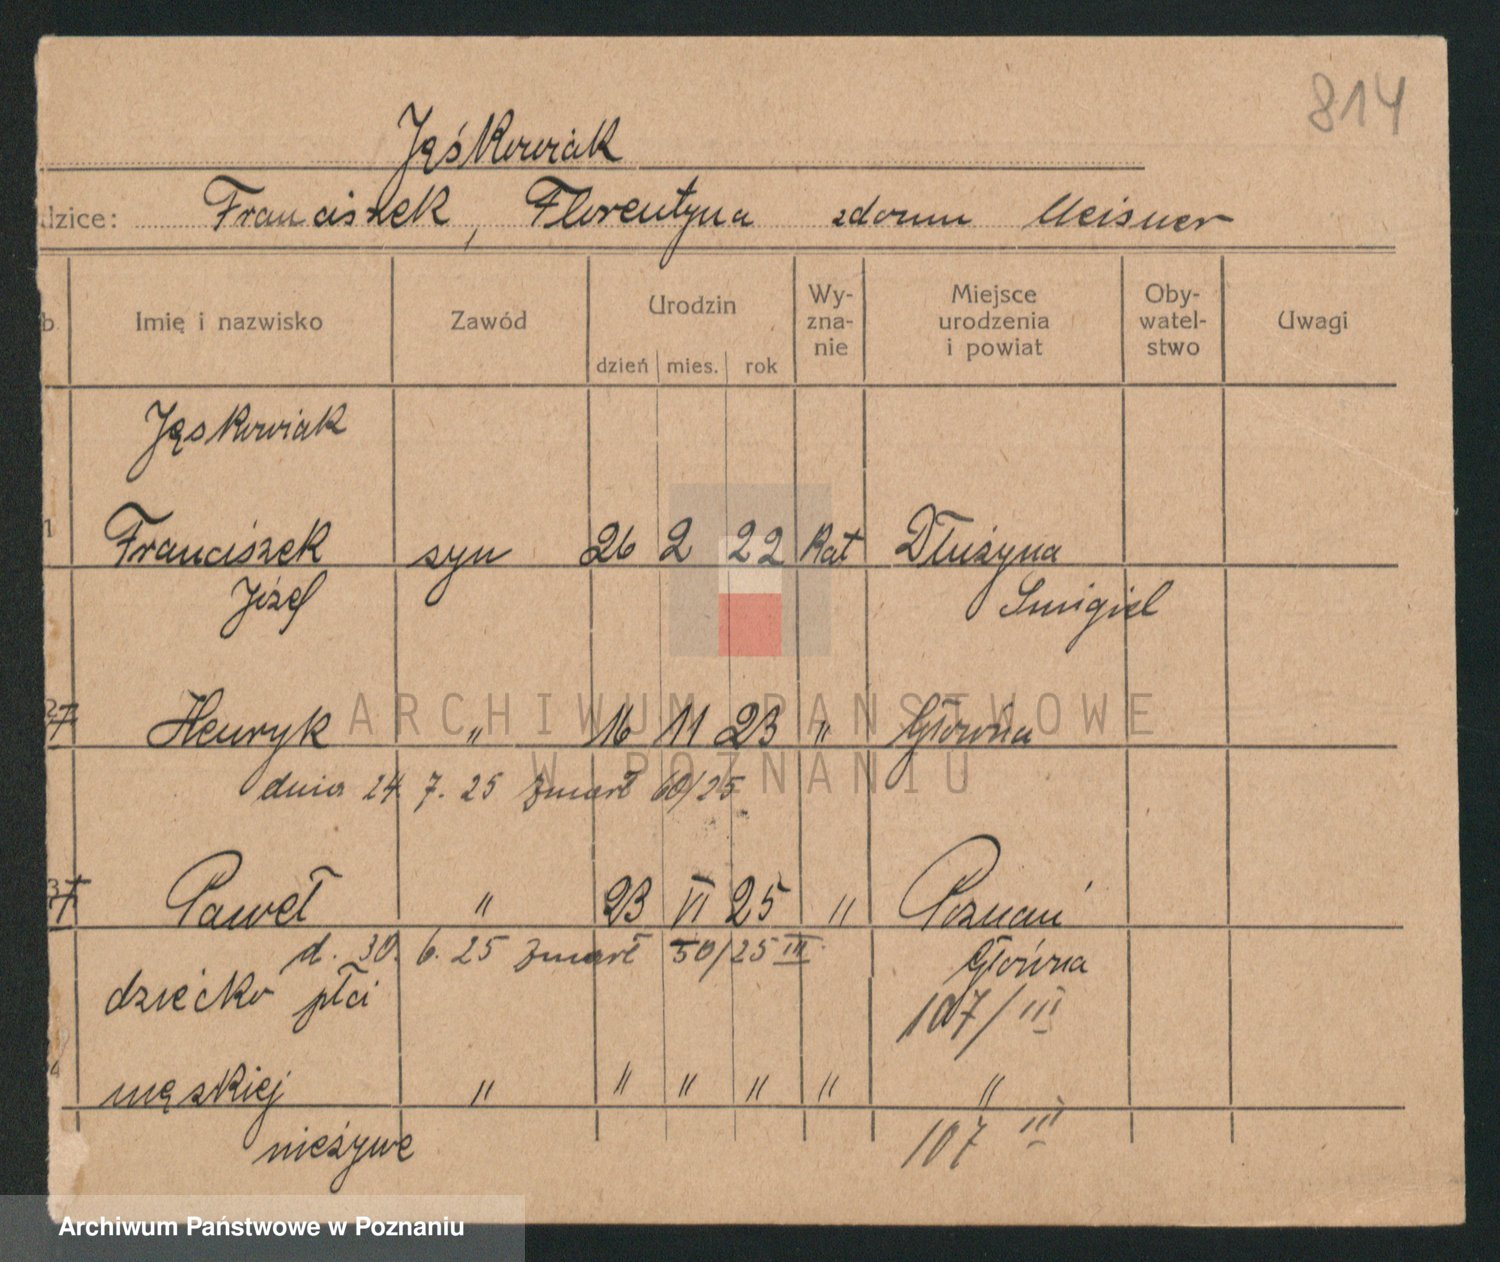 814
Jąśkowiak
dzice: Franciszek, Florentyna zdomu Meisner
b Imię i nazwisko Zawód Urodzin dzień mies. rok Wy-zna-nie Miejsce urodzenia i powiat Oby-watel-stwo Uwagi
Jąskowiak
1 Franciszek syn 26 2 22 Kat Dłużyna
Józef Smigiel
2 Henryk " 16 11 23 " Główna
dnia 24. 7. 25 zmarł 60/25
3 Paweł " 23 VI 25 " Poznań
d. 30. 6. 25 zmarł 50/25 III Główna
dziecko płci 107/III
4 męskiej " " " " " "
nieżywe 107 III
ARCHIWUM PAŃSTWOWE
W POZNANIU
Archiwum Państwowe w Poznaniu